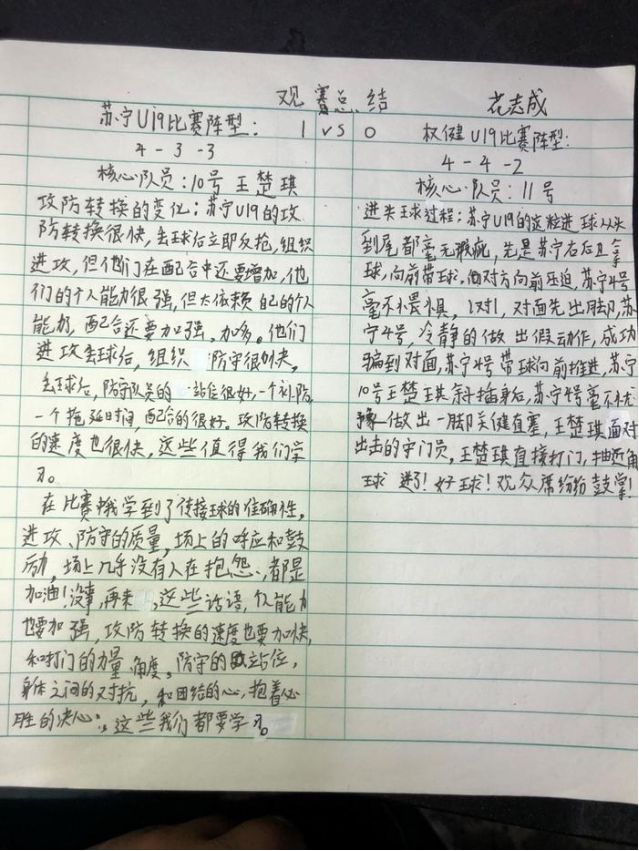 观赛总结 花志成
苏宁U19比赛阵型:
1 vs 0
权健U19比赛阵型:
4-3-3
4-4-2
核心队员:10号 王楚琪
核心队员:11号
攻防转换的变化:苏宁U19的攻
防转换很快,丢球后立即反抢,组织
进攻,但他们在配合中还要增加,他
们的个人能力很强,但太依赖自己的个人
能力,配合还要加强、加多。他们
进攻丢球后,组织防守很快,
丢球后,防守队员的站位很好,一个补防,
一个拖延时间,配合的很好。攻防转换
的速度也很快,这些值得我们学
习。
在比赛我学到了传接球的准确性,
进攻、防守的质量,场上的呼应和鼓
励,场上几乎没有人在抱怨,都是
加油!没事,再来,这些话语,个人能力
也要加强,攻防转换的速度也要加快,
和打门的力量角度,防守的站位,
身体之间的对抗,和团结的心,抱着必
胜的决心,这些我们都要学习。
进失球过程:苏宁U19的这粒进球从头
到尾都毫无瑕疵,先是苏宁右后卫拿
球,向前带球,但对方向前压迫,苏宁4号
毫不畏惧,1对1,对面先出脚,苏
宁4号,冷静的做出假动作,成功
骗到对面,苏宁4号带球向前推进,苏宁
10号王楚琪斜插身后,苏宁4号毫不犹
豫做出一脚关健直塞,王楚琪面对
出击的守门员,王楚琪直接打门,抽近角
球进了!好球!观众席纷纷鼓掌!